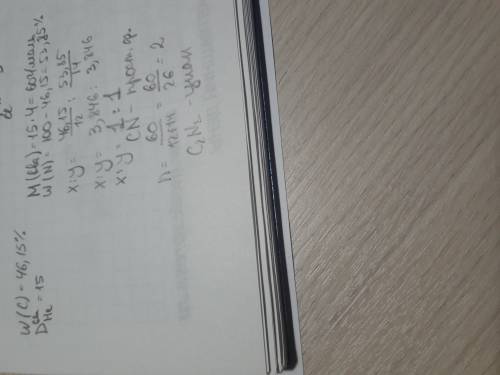 W(C) = 46,15%
D He = 15
M = 15·4 = 60 г/моль
W(N) = 100 - 46,15 = 53,85%
x:y = 46,15/12 : 53,85/14
x:y = 3,846 : 3,846
x:y = 1 : 1
CN - прост. ф.
n = 60/12+14 = 60/26 = 2
C2N2 - циан